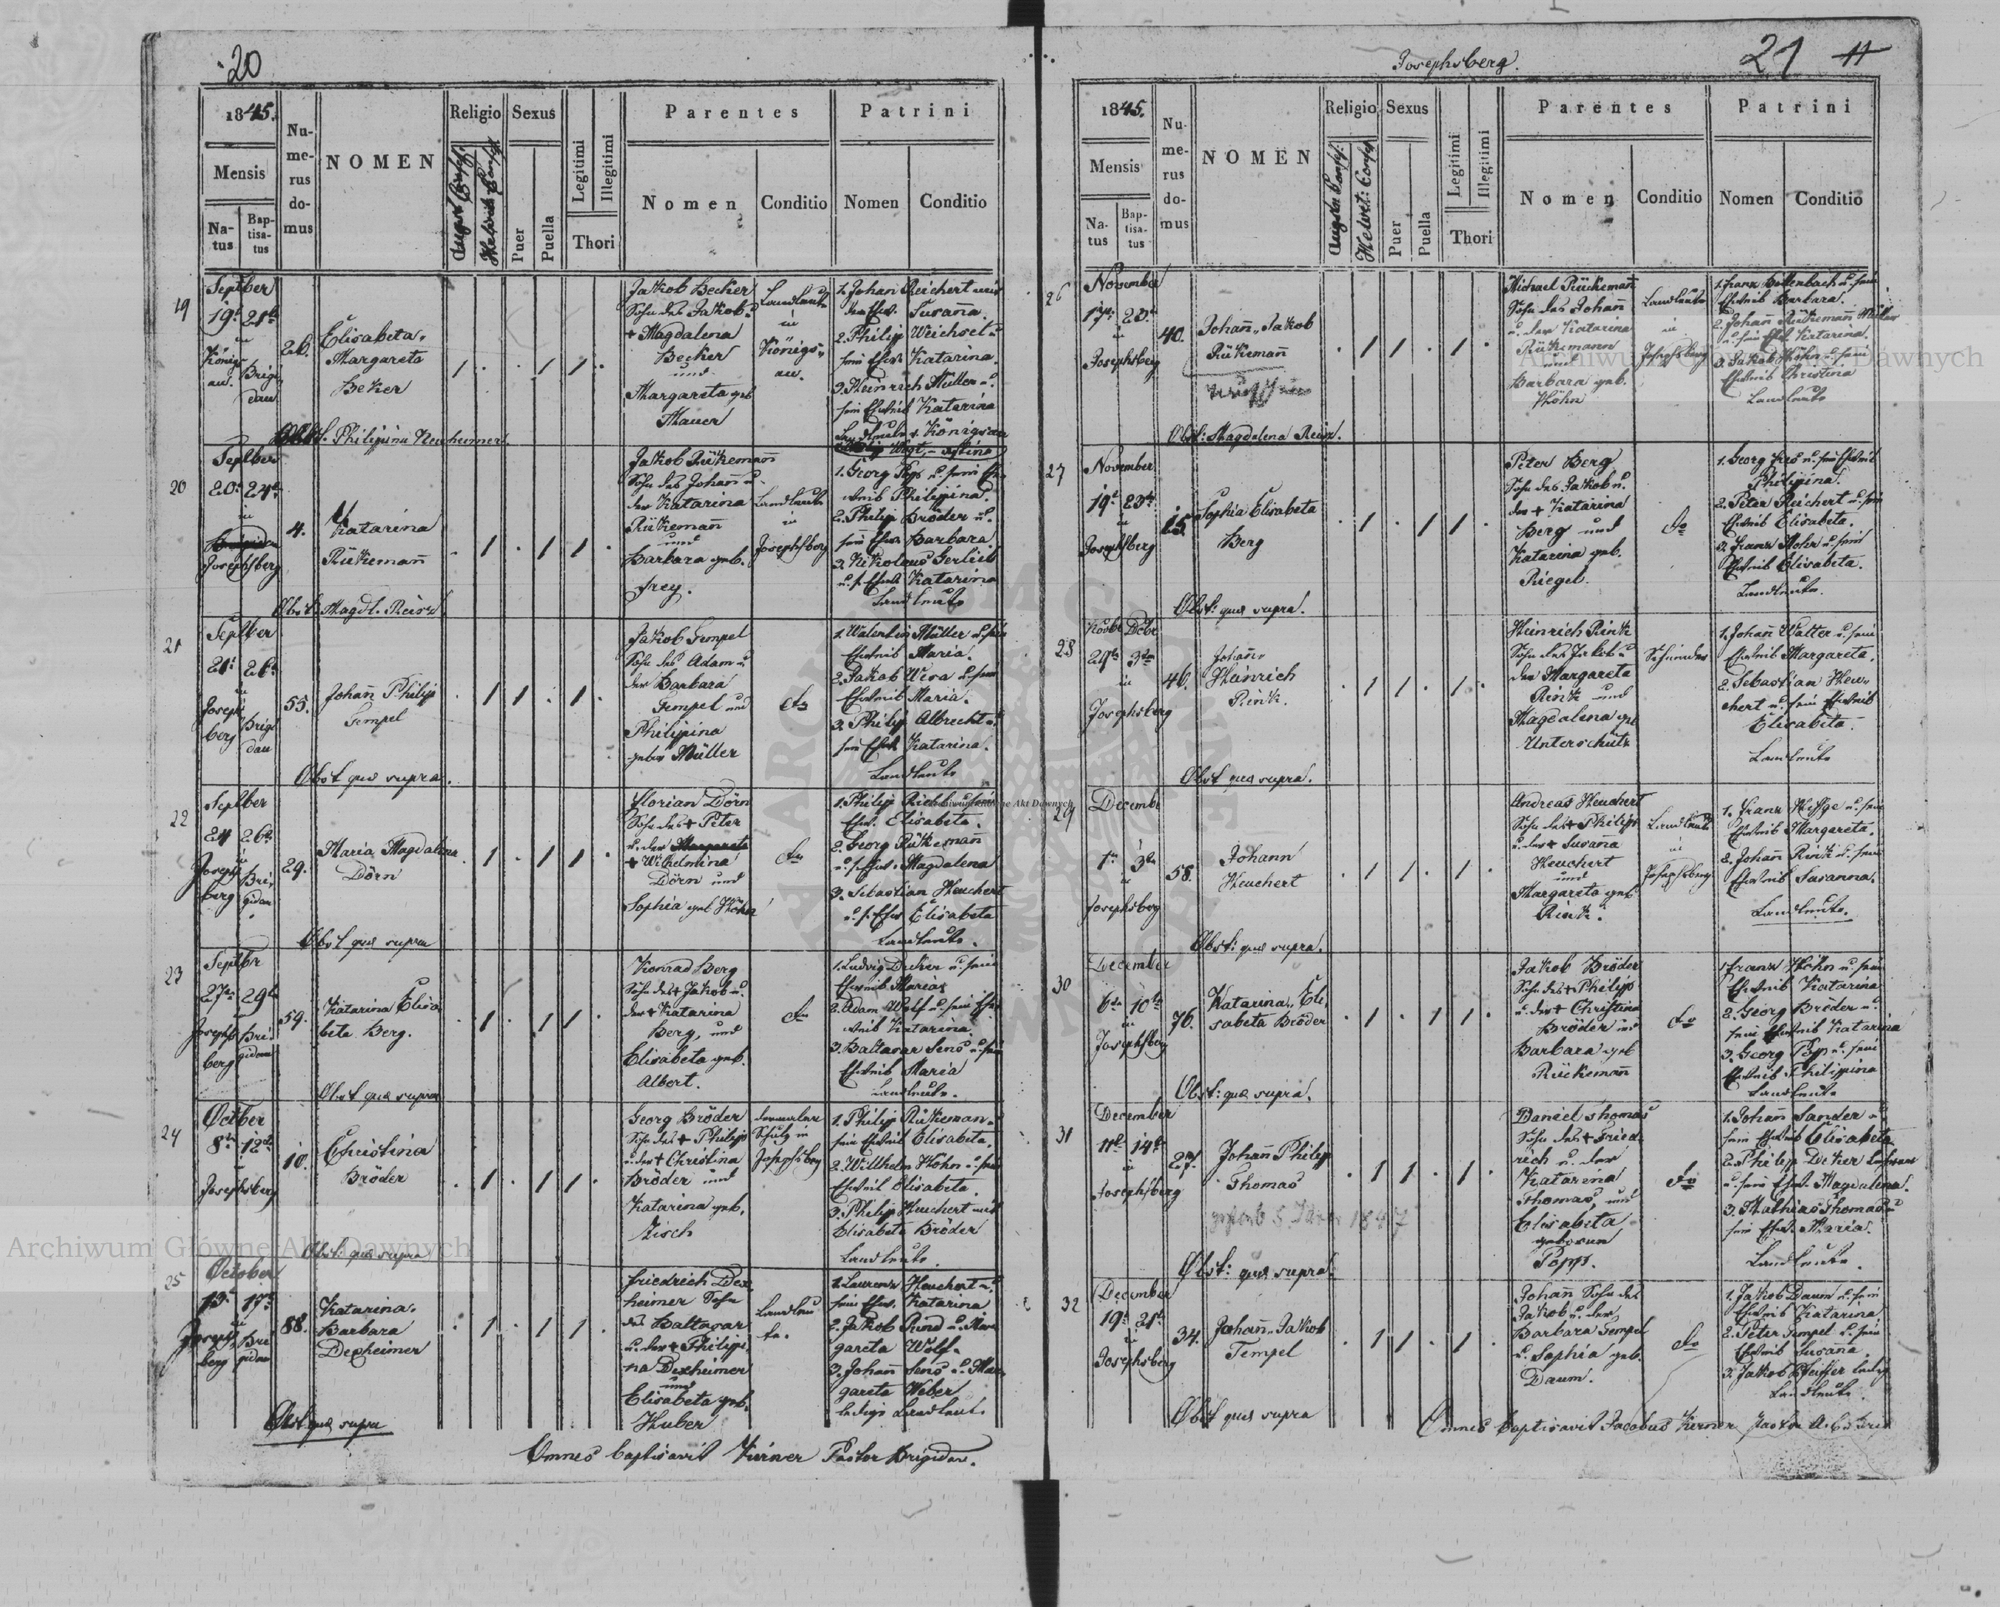 20
1845.
Mensis
Na-
tus
Bap-
tisa-
tus
Nu-
me-
rus
do-
mus
NOMEN
Religio
Sexus
Puer
Puella
Legitimi
Illegitimi
Thori
Parentes
Nomen
Conditio
Patrini
Nomen
Conditio
19
Septber
19. 21t
in
Königs
au.
Brigi
dau
26.
Elisabeta,
Margareta
Beker
Jakob Becker
Sohn des Jakob u.
+ Magdalena
Becker
und
Margareta geb
Mauer
Landleute
in
Königs-
au.
1. Johan Reichert
Susana.
2. Philip Weichsel u
sein Ehew. Katarina.
3. Heinrich Müller u.
sein Eheweib Katarina
Obst. Philippina Neuheimer
20
Septber
20. 24t
in
Josephsberg
4.
Katarina
Rükeman̄
Jakob Rükeman̄
Sohn des Johan̄ u.
der Katarina
Rükeman̄
und
Barbara geb.
Frey.
Landleute
in
Josephsberg
1. Georg Popp u. sein Ehe-
weib Philippina.
2. Philip Bröder u.
sein Ehew. Barbara
3. Nikolaus Gerlieb
u. s. Ehew. Katarina
Landleute
Obst. Magdl. Reisz
21
Septber
21. 26t
in
Joseph
berg
Brigi
dau
55.
Johan̄ Philip
Tempel
Jakob Tempel
Sohn des Adam u
der Barbara
Tempel und
Philippina
geborn Müller
dto
1. Walentin Müller u. sein
Eheweib Maria.
2. Jakob Wira u. sein
Eheweib Maria.
3. Philip Albrecht u.
sein Ehew. Katarina.
Landleute
Obst quæ supra.
22
Septber
24 26t
in
Josephs
berg
Bri-
gidau
29.
Maria Magdalena
Dörn
Florian Dörn
Sohn des + Peter
u. der Margareta
+ Wilhelmina
Dörn und
Sophia geb Höher
dto
1. Philip Rich u. sein
Ehew. Elisabeta.
2. Georg Rükeman̄
u. s. Ehew. Magdalena
3. Sebastian Heuchert
u. s. Ehew Elisabeta
Landleute.
Obst quæ supra
23
Septbr
27t 29t
in
Josephs
berg
Bri-
gidau
59.
Katarina Elisa
beta Berg.
Konrad Berg
Sohn des + Jakob u.
der + Katarina
Berg, und
Elisabeta geb.
Albert.
dto
1. Ludvig Deker u. sein
Eheweib Maria
2. Adam Wolf u. sein Ehe-
weib Katarina.
3. Baltasar Sens u. sein
Eheweib Maria
Landleute.
Obst quæ supra
24
Octber
8t 12t
in
Josephsberg
10.
Christina
Bröder
Georg Bröder
Sohn des + Philip
u. der + Christina
Bröder und
Katarina geb.
Zisch
Schulz in
Josephsberg
1. Philip Rükeman-
sein Eheweib Elisabeta.
2. Willhelm Höhn u. sein
Eheweib Elisabeta
3. Philip Heuchert und
Elisabeta Bröder
Landleute.
Obst: quæ supra
25
October
13t 17t
in
Josephs
berg
Bri
gidau
88.
Katarina,
Barbara
Dexheimer
Friedrich Dex
heimer Sohn
des Baltasar
u. der + Philippi
na Dexheimer
und
Elisabeta geb.
Huber
Landleu
te.
1. Laurenz Heuchert u.
sein Ehew. Katarina
2. Jakob Rind u. Mar
gareta Wolf.
3. Johan̄ Sens u. Mar
gareta Weber
ledige Landleut.
Obst quæ supra
Omnes baptisavit Kürner Pastor Brigidau.
Josephsberg.
21
11
1845.
Mensis
Na-
tus
Bap-
tisa-
tus
Nu-
me-
rus
do-
mus
NOMEN
Religio
Augsb. Confess.
Helvet: Confess
Sexus
Puer
Puella
Legitimi
Illegitimi
Thori
Parentes
Nomen
Conditio
Patrini
Nomen
Conditio
26
November
17t 23t
in
Josephsberg
40.
Johan̄, Jakob
Rükeman̄
Michael Rückeman̄
Sohn des Johan̄
u. der Katarina
Rükemann
und
Barbara geb.
Höhn
Landleute
in
Josephsberg
Eheweib Barbara.
2. Johan̄ Rükeman̄
u. sein Ehew Katarina.
3. Jakob Höhn u. sein
Eheweib Christina
Landleute
Obst: Magdalena Reisz.
27
November
19t 23t
in
Josephsberg
15.
Sophia Elisabeta
Berg
Peter Berg
Sohn des Jakob u.
der + Katarina
Berg und
Katarina geb.
Riegel.
dto
Philipina.
2. Peter Reichert u. sein
Eheweib Elisabeta.
Eheweib Elisabeta.
Landleute.
Obst: quæ supra.
28
Novbr Decbr
29t 3t
in
Josephsberg
46.
Johan̄,
Heinrich
Rink.
Heinrich Rink
Sohn des Jakob u
der Margareta
Rink und
Magdalena geb
Unterschütz
Schneider
1. Johan̄ Walter u. sein
Eheweib Margareta.
2. Sebastian Heu-
chert u. sein Eheweib
Elisabeta.
Landleute
Obst quæ supra.
29
Decembr
1t 3t
in
Josephsberg
58.
Johann
Heuchert
Andreas Heuchert
Sohn des + Philip
u. der + Susana
Heuchert
und
Margareta geb.
Rink.
Landleute
in
Josephsberg
Eheweib Margareta.
2. Johan̄ Rink u. sein
Eheweib Susanna.
Landleute.
Obst: quæ supra.
30
December
6t 10t
in
Josephsberg
76.
Katarina, Eli
sabeta Bröder
Jakob Bröder
Sohn des + Philip
u. der + Christina
Bröder und
Barbara geb
Rückeman̄
dto
1. Franz Höhn u. sein
Eheweib Katarina
2. Georg Bröder u.
sein Eheweib Katarina
3. Georg Popp u. sein
Eheweib Philippina
Landleute
Obst: quæ supra.
31
December
11t 14t
in
Josephsberg
27.
Johan̄ Philip
Thomas
Daniel Thomas
Sohn des + Fried
rich u. der
Katarina
Thomas, und
Elisabeta
geboren
Popp.
dto
1. Johan̄ Sander u
sein Eheweib Elisabeta
2. Philip Deker
u. sein Ehew. Magdalena.
3. Mathias Thomas u
sein Ehew. Maria.
Landleute.
Obst: quæ supra.
32
December
19t 21t
in
Josephsberg
34.
Johan̄, Jakob
Tempel
Johan̄ Sohn des
Jakob u. der
Barbara Tempel
u. Sophia geb.
Daum.
dto
1. Jakob Daum u. sein
Eheweib Katarina
2. Peter Tempel u. sein
Eheweib Susana.
3. Jakob Pfeiffer ledig
Landleute.
Obst quæ supra
Omnes baptisavit Jacobus Kürner Pastor
Archiwum Główne Akt Dawnych